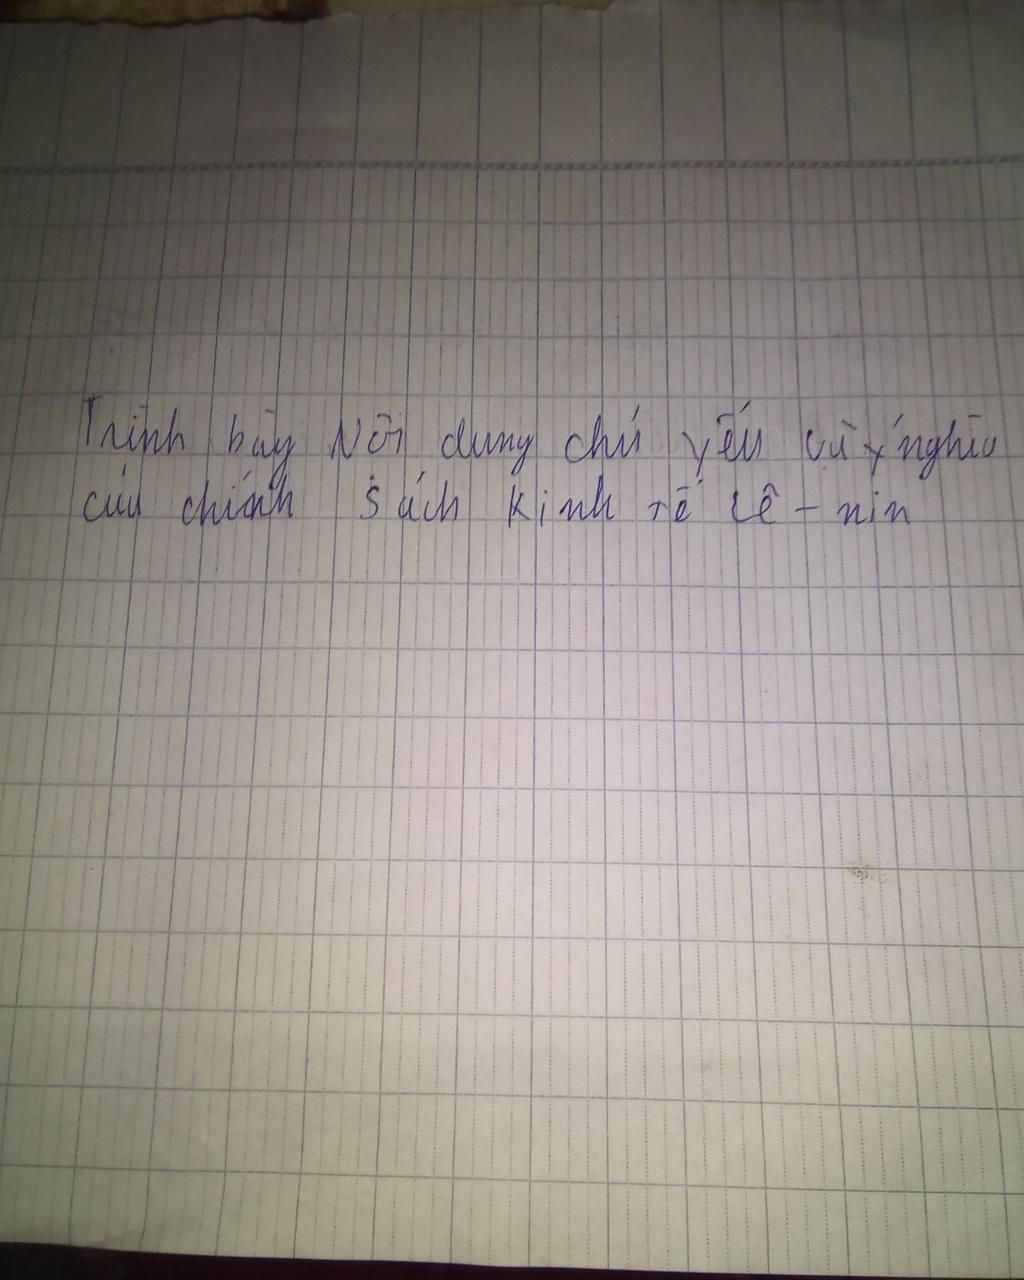 Trình bày Nội dung chủ yếu và ý nghĩa
của chính sách kinh tế Lê - nin